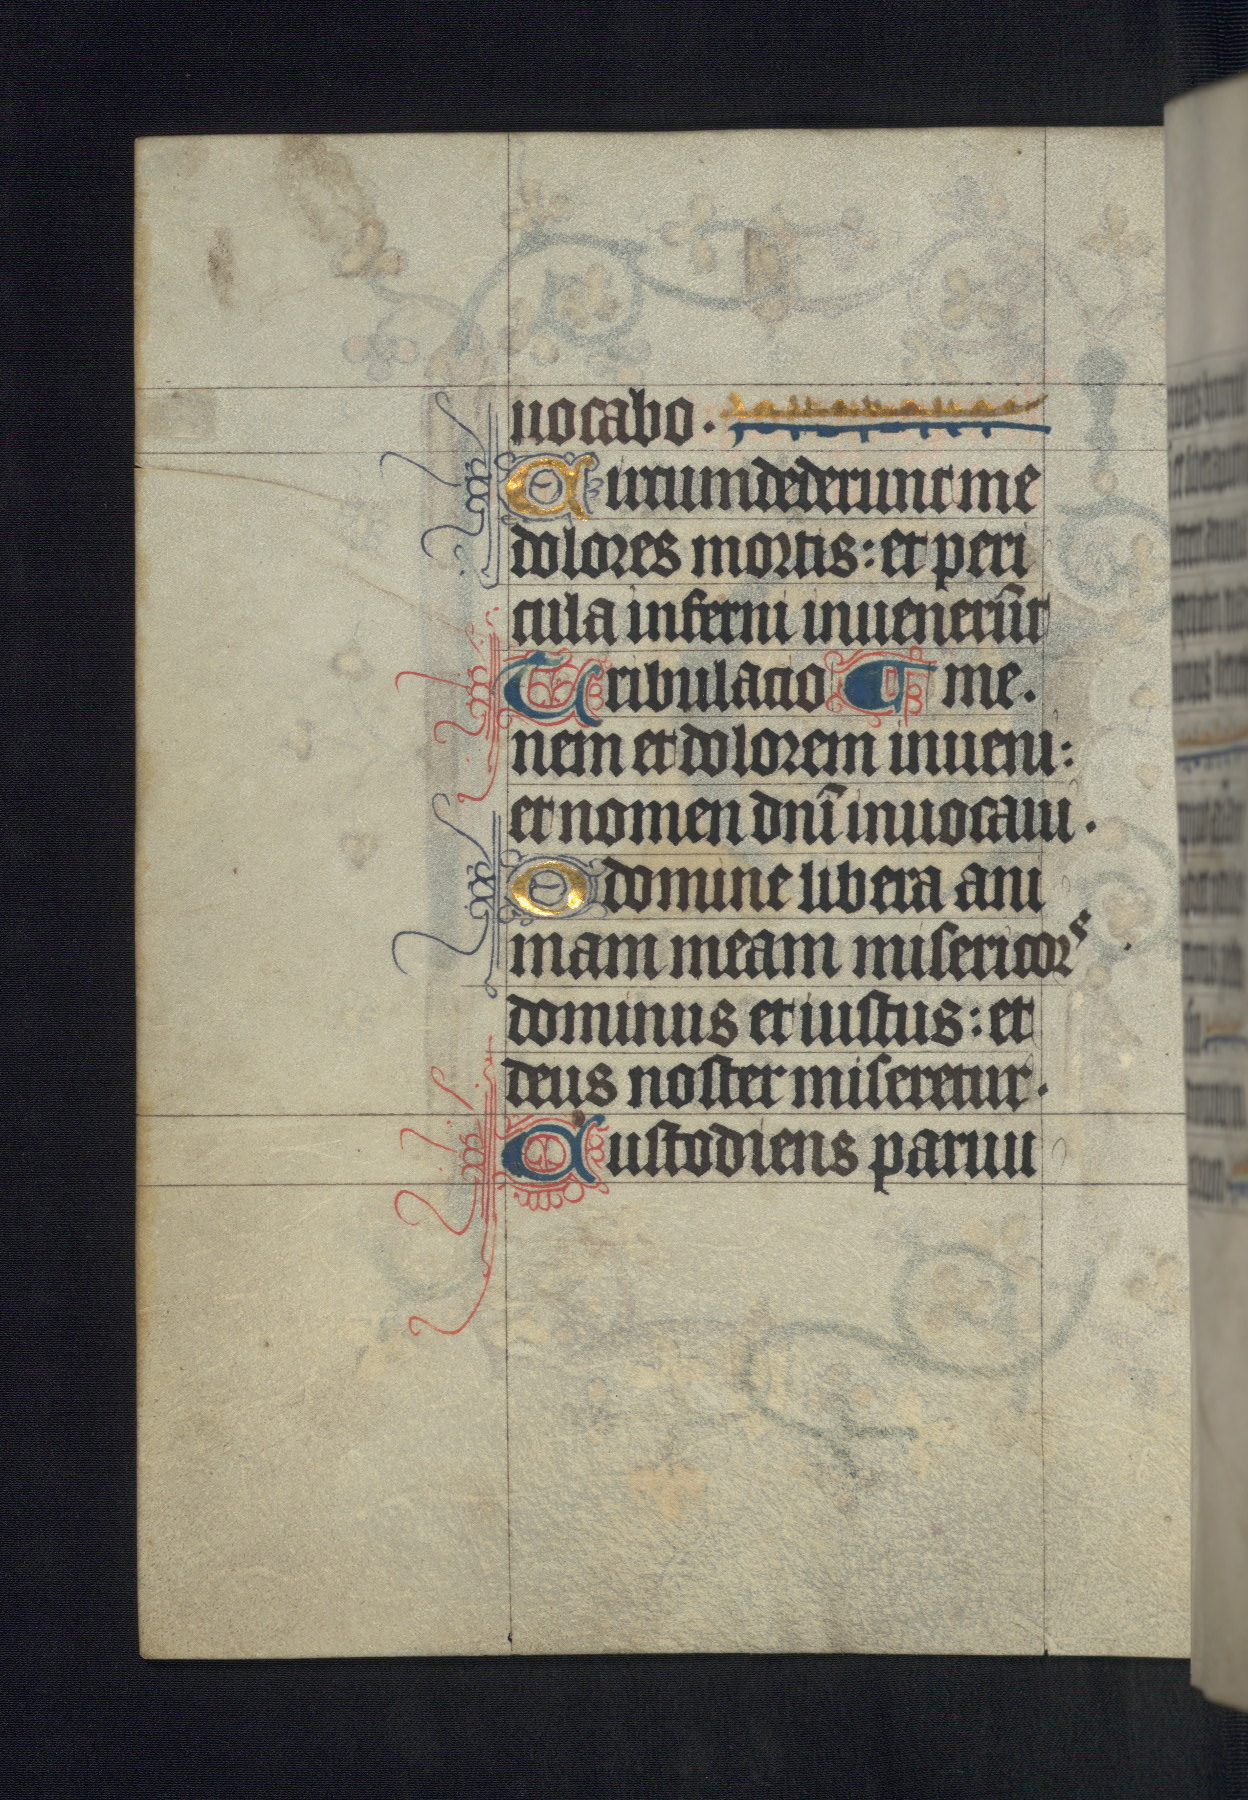 uocabo.
Circumdederunt me
dolores mortis: et peri
cula inferni inuenerūt
Tribulacio T me.
nem et dolorem inueni:
et nomen dnī inuocaui.
O domine libera ani
mam meam misericors
dominus et iustus: et
deus noster miseretur.
Custodiens paruu